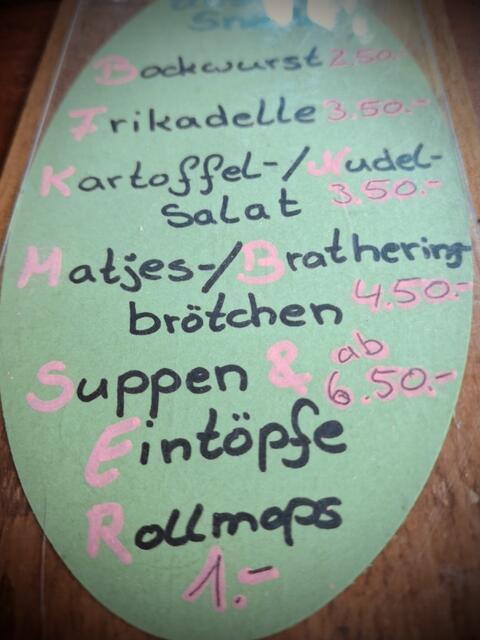 Bockwurst 2.50.-
Frikadelle 3.50.-
Kartoffel-/Nudel-
Salat 3.50.-
Matjes-/Brathering-
brötchen 4.50.-
Suppen & ab
6.50.-
Eintöpfe
Rollmops
1.-